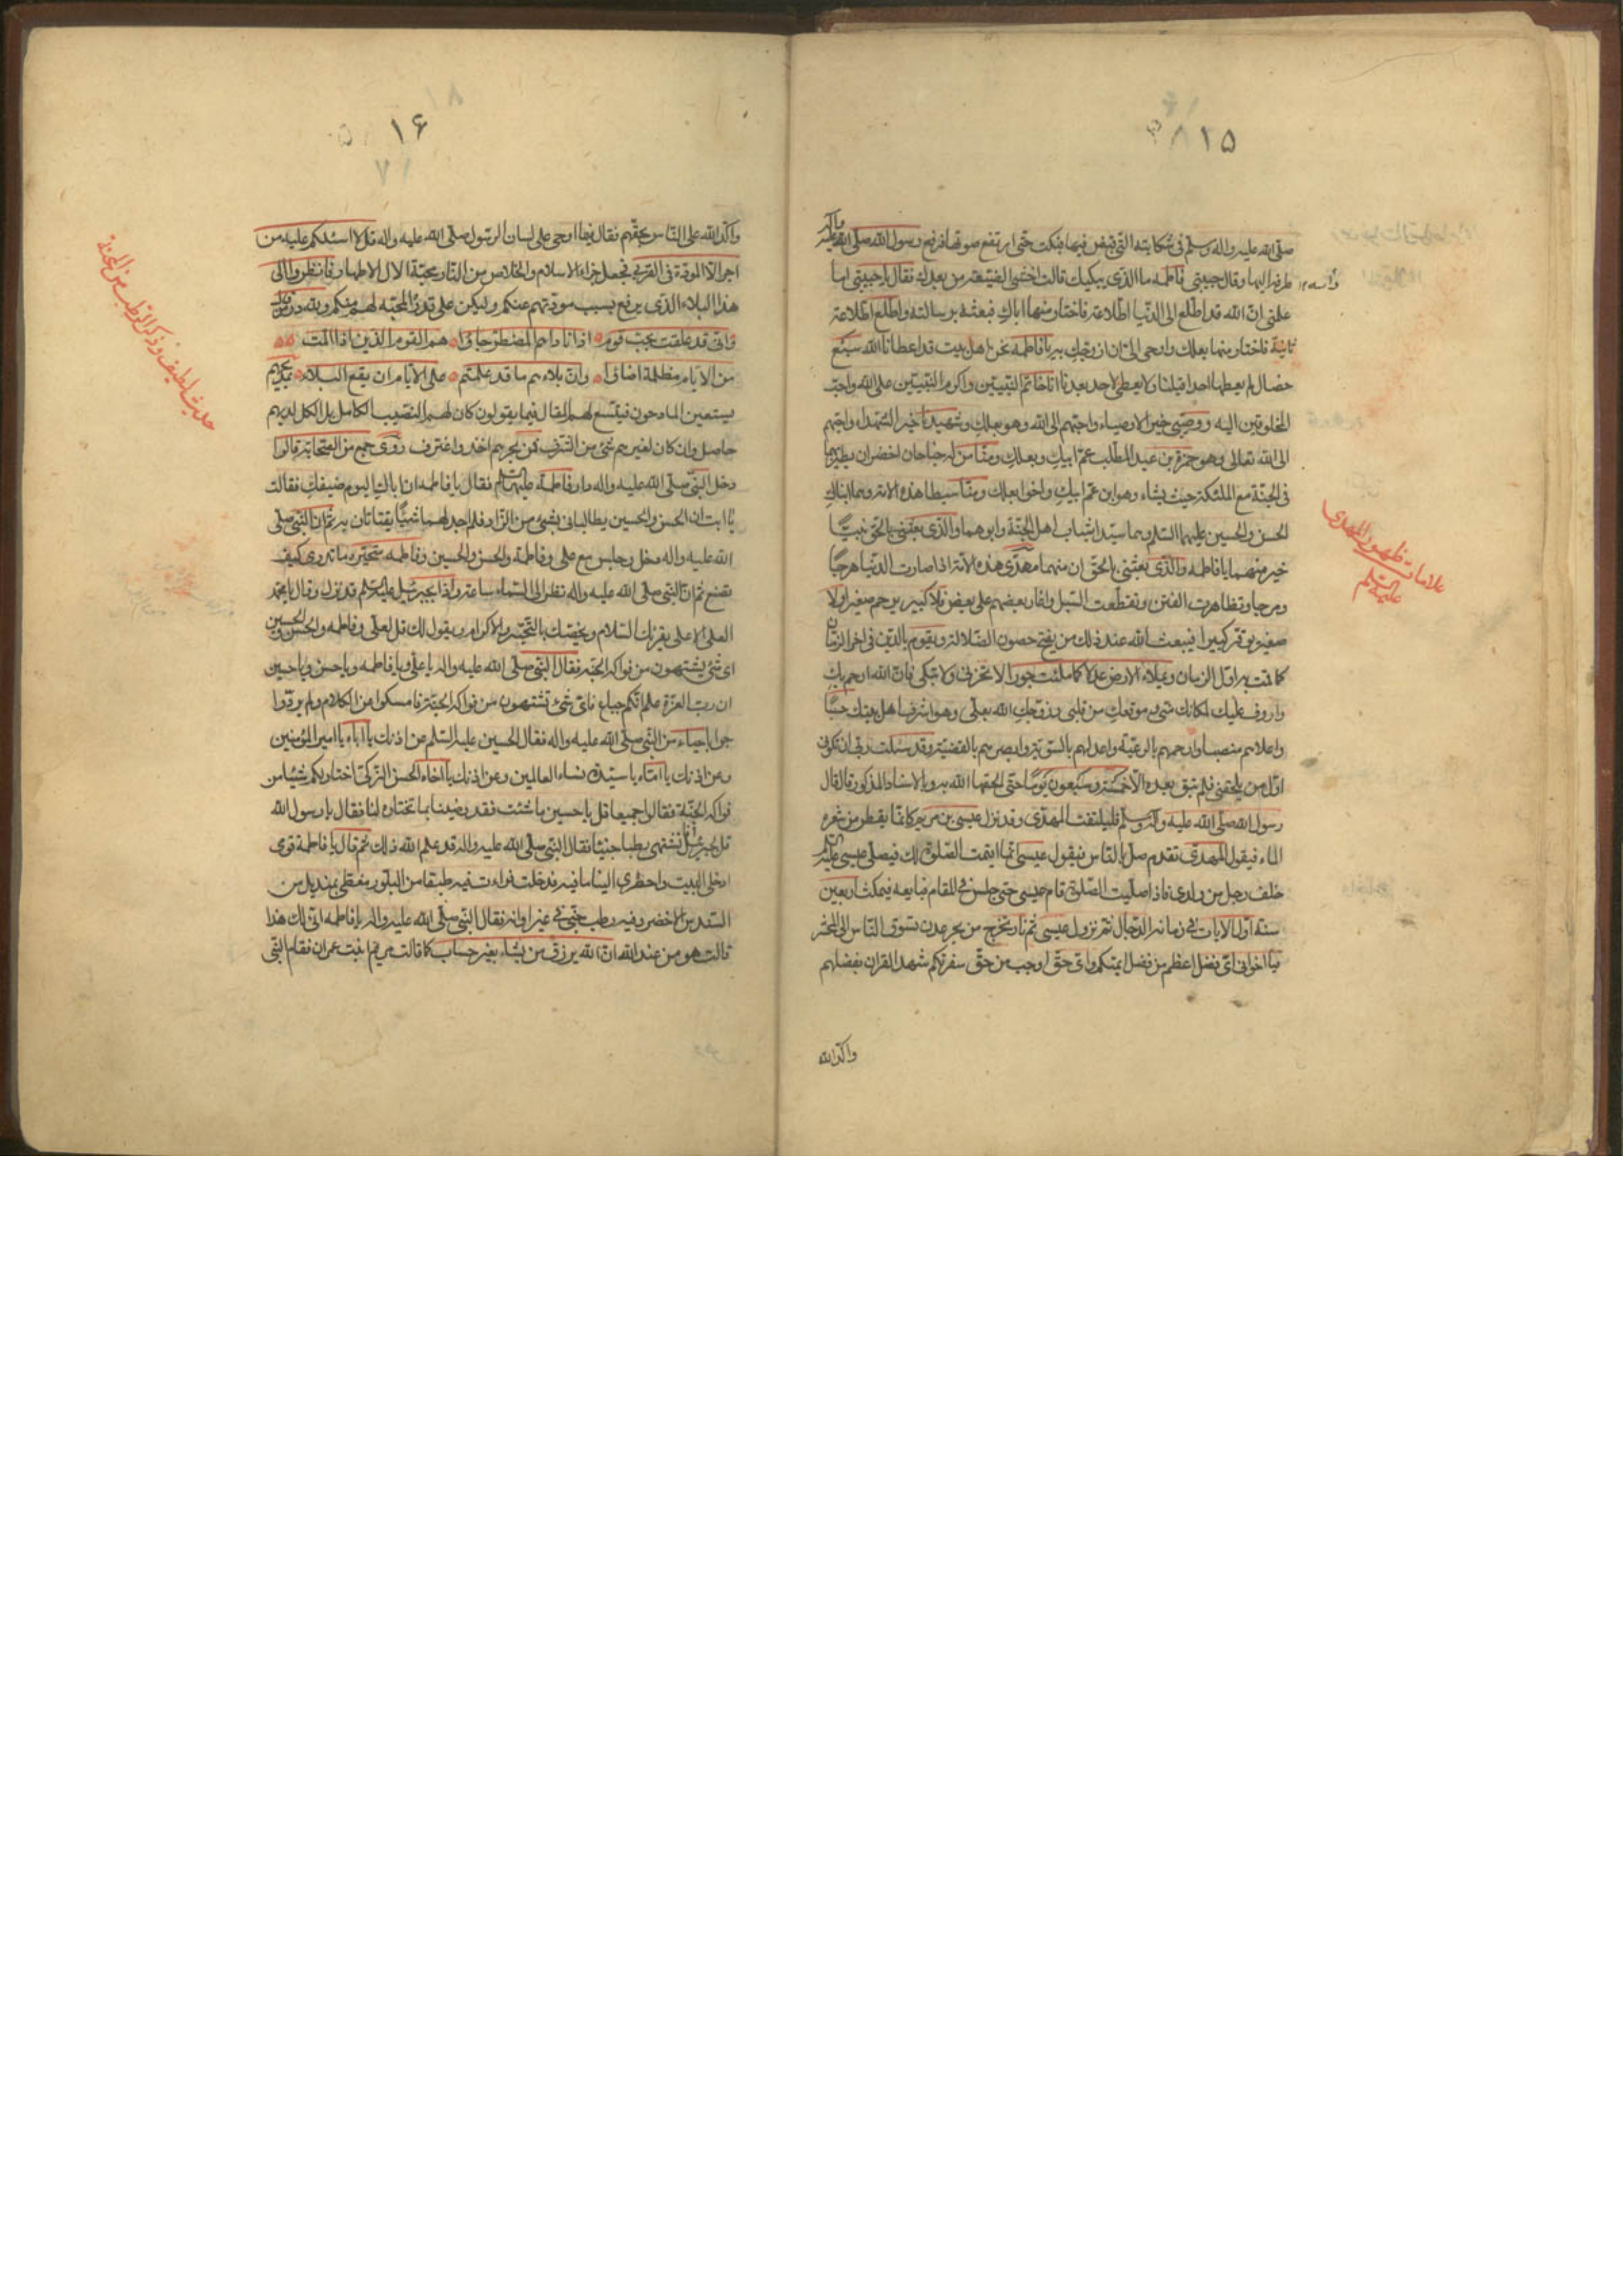 ١٥
صلى الله عليه واله وسلم فى شكايته التى قبض فيها فبكت حتى ارتفع صوتها فرفع رسول الله صلى الله عليه واله
طرفه اليها وقال حبيبتى فاطمه ما الذى يبكيك قالت اخشى الضيعة من بعدك فقال يا حبيبتى اما
علمتى ان الله قد اطلع الى الدنيا اطلاعة فاختار منها اباك فبعثه برسالته واطلع اطلاعة
ثانية فاختار منها بعلك واوحى الى ان ازوجك به يا فاطمه نحن اهل بيت قد اعطانا الله سبع
خصال لم يعطها احدا قبلنا ولا يعطى لاحد بعدنا انا خاتم النبيين واكرم النبيين على الله واحب
المخلوقين اليه ووصيى خير الاوصياء واحبهم الى الله وهو بعلك وشهيدنا خير الشهداء واحبهم
الى الله تعالى وهو حمزة بن عبد المطلب عم ابيك وبعلك ومنا من له جناحان اخضران يطير بهما
فى الجنة مع الملئكة حيث يشاء وهو ابن عم ابيك واخو بعلك ومنا سبطا هذه الامة وهما ابناك
الحسن والحسين عليهما السلم وهما سيدا شباب اهل الجنة وابوهما والذى بعثنى بالحق نبيا
خير منهما يا فاطمه والذى بعثنى بالحق ان منهما مهدى هذه الامة اذا صارت الدنيا هرجا
ومرجا وتظاهرت الفتن وتقطعت السبل واغار بعضهم على بعض فلا كبير يرحم صغيرا ولا
صغير يوقر كبيرا فيبعث الله عند ذلك من يفتح حصون الضلالة ويقوم بالدين فى اخر الزمان
كما قمت به اول الزمان ويملاء الارض عدلا كما ملئت جورا لا تحزنى ولا تبكى فان الله ارحم بك
واروف عليك لمكانك منى وموقعك من قلبى وزوجك الله بعلى وهو اشرف اهل بيتك حسبا
واعلاهم منصبا وارحمهم بالرعية واعدلهم بالسوية وابصرهم بالقضية وقد سئلت ربى ان تكونى
اول من يلحقنى فلم تبق بعده الا خمسة وسبعون يوما حتى الحقها الله به وبالاسناد المذكور قال قال
رسول الله صلى الله عليه وآله وسلم فليلتفت المهدى وقد نزل عيسى بن مريم كانما يقطر من شعره
الماء فيقول المهدى تقدم صل بالناس فيقول عيسى انما اقيمت الصلوة لك فيصلى عيسى عليه السلم
خلف رجل من ولدى فاذا صليت الصلوة قام عيسى حتى جلس فى المقام فبايعه فيمكث اربعين
سنة اول الايات فى زمانه الدجال ثم نزول عيسى ثم نار تخرج من بحر عدن تسوق الناس الى المحشر
يا اخوانى اى فضل اعظم من فضل ائمتكم واى حق اوجب من حق سفرتكم شهد القران بفضلهم
واكد الله
علامات ظهور المهدى
عليه السلم
١۶
واكد الله على الناس بحقهم فقال فيما اوحى على لسان الرسول صلى الله عليه واله قل لا اسئلكم عليه من
اجر الا المودة فى القربى فجعل جزاء الاسلام والخلاص من النار محبة الال الاطهار فانظروا الى
هذا البلاء الذى يرفع بسبب مودتهم عنكم وليكن على قدر المحبة لهم منكم ولله در من قال
وانى قد علقت بحب قوم اذا ناداهم المضطر جاؤا هم القوم الذين اذا المت
من الايام مظلمة اضاؤا وان بلاءهم ما قد علمتم على الايام ان يقع البلاء بمدحهم
يستعين المادحون فيتسع لهم المقال فيما يقولون كان لهم النصيب الكامل بل الكل لديهم
حاصل وان كان لغيرهم شئ من الشرف فمن بحرهم اخذ واغترف روى جمع من الصحابة قالوا
دخل النبى صلى الله عليه واله دار فاطمة عليها السلم فقال يا فاطمه ان اباك اليوم ضيفك فقالت
يا ابت ان الحسن والحسين يطالبانى بشئ من الزاد فلم اجد لهما شيئا يقتاتان به ثم ان النبى صلى
الله عليه واله دخل وجلس مع على وفاطمة والحسن والحسين وفاطمه متحيره ما تدرى كيف
تصنع ثم ان النبى صلى الله عليه واله نظر الى السماء ساعة واذا بجبرئيل عليه السلم قد نزل وقال يا محمد
العلى الاعلى يقرئك السلام ويخصك بالتحية والاكرام ويقول لك قل لعلى وفاطمه والحسن والحسين
اى شئ يشتهون من فواكه الجنة فقال النبى صلى الله عليه واله يا على ويا فاطمه ويا حسن ويا حسين
ان رب العزة علم انكم جياع فاى شئ تشتهون من فواكه الجنة فامسكوا من الكلام ولم يردوا
جوابا حياء من النبى صلى الله عليه واله فقال الحسين عليه السلم عن اذنك يا اباه يا امير المؤمنين
وعن اذنك يا اماه يا سيدة نساء العالمين وعن اذنك يا اخاه الحسن الزكى اختار لكم شيئا من
فواكه الجنة فقالوا جميعا قل يا حسين ما شئت فقد رضينا بما تختاره لنا فقال يا رسول الله
قل لجبرئيل نشتهى رطبا جنيا فقال النبى صلى الله عليه واله قد علم الله ذلك ثم قال يا فاطمة قومى
ادخلى البيت واحضرى الينا ما فيه فدخلت فراءت فيه طبقا من البلور مغطى بمنديل من
السندس الاخضر وفيه رطب جنى فى غير اوانه فقال النبى صلى الله عليه واله يا فاطمه انى لك هذا
قالت هو من عند الله ان الله يرزق من يشاء بغير حساب كما قالت مريم ابنت عمران فقام النبى
حديث لطيف وذكر الرطب من الجنة